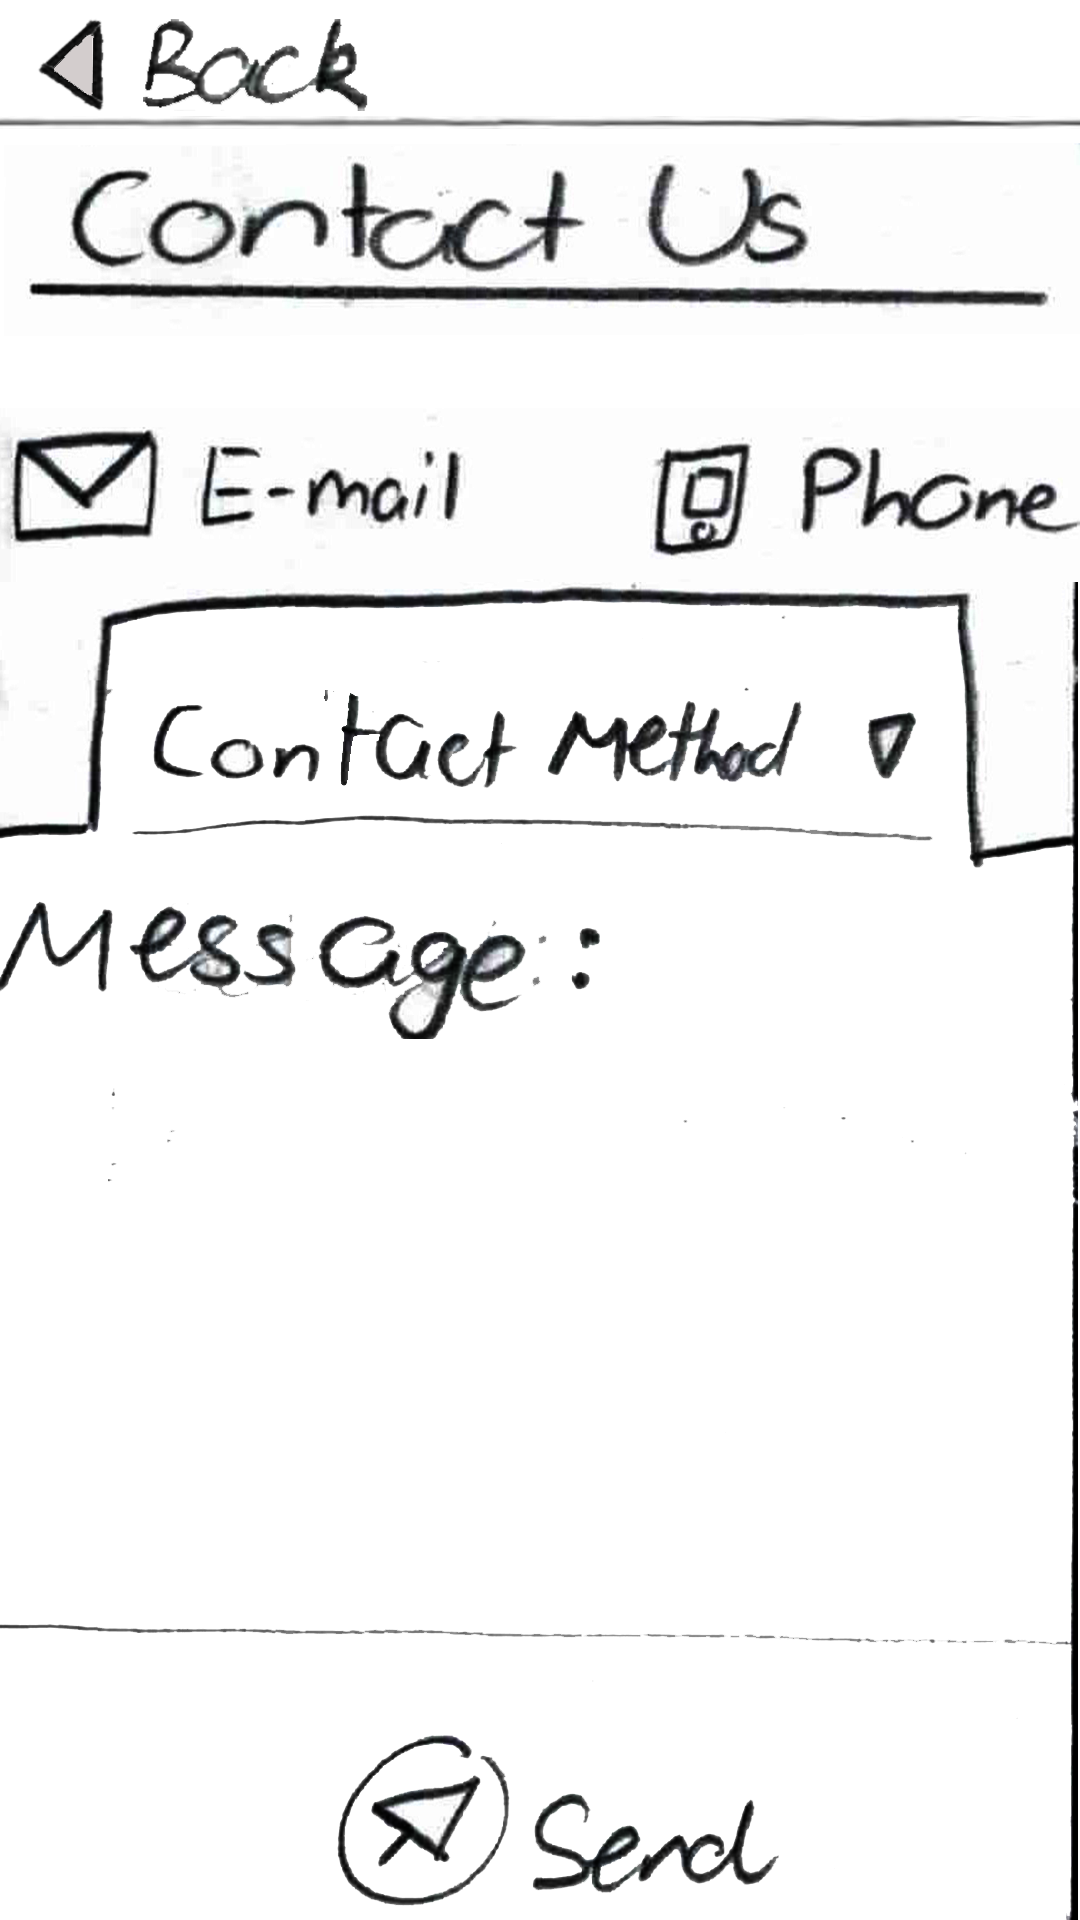 Back
Contact Us
E-mail Phone
Contact Method
Message:
Send